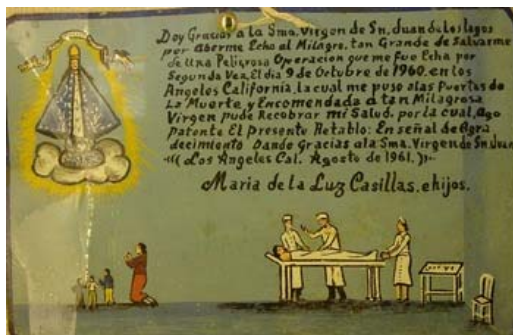 Doy Gracias a la Sma. Virgen de Sn. Juan de Los lagos
por aberme Echo al Milagro, tan Grande de Salvarme
de Una Peligrosa Operacion que me fue Echa por
Segunda Vez, El dia 9 de Octubre de 1960. en Los
Angeles California, La cual me puso alas Puertas de
La Muerte, y Encomendada a tan Milagrosa
Virgen pude Recobrar mi Salud. por la cual, Ago
patente El presente Retablo: En señal de Agra
decimiento Dando Gracias ala Sma. Virgen de Sn. Juan
((( Los Angeles Cal. Agosto de 1961. )))
Maria de la Luz Casillas. e hijos.